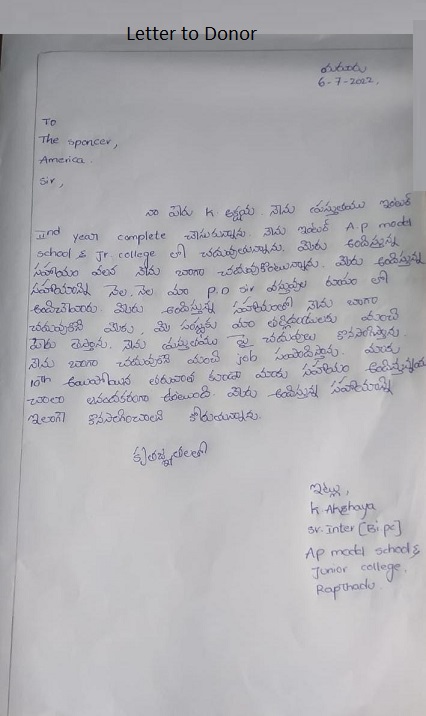 Letter to Donor
మరూరు
6-7-2022.
To
The sponcer,
America.
Sir,
నా పేరు K. అక్షయ. నేను ప్రస్తుతము ఇంటర్
IInd year complete చేసుకున్నాను. నేను ఇంటర్ A.p model
school & Jr. college లో చదువుతున్నాను. మీరు అందిస్తున్న
సహాయం వలన నేను బాగా చదువుకొంటున్నాను. మీరు అందిస్తున్న
సహాయాన్ని నెల, నెల మా P.O sir వస్తువుల రూపం లో
అందిచేవారు. మీరు అందిస్తున్న సహాయంతో నేను బాగా
చదువుకొని మీకు, మీ సంస్థకు మా తల్లిదండ్రులకు మంచి
పేరు తెస్తాను. నేను ప్రస్తుతము పై చదువులు కొనసాగిస్తాను.
నేను బాగా చదువుకొని మంచి job సంపాదిస్తాను. మాకు
10th అయిపోయిన తరువాత కూడా మాకు సహాయం అందిస్తున్నందుకు
చాలా ఆనందకరంగా ఉంటుంది. మీరు అందిస్తున్న సహాయాన్ని
ఇలాగే కొనసాగించాలని కోరుచున్నాను.
కృతజ్ఞతలతో
ఇట్లు,
K. Akshaya
Sr. Inter [Bi pc]
Ap model school &
Junior college,
Rapthadu.